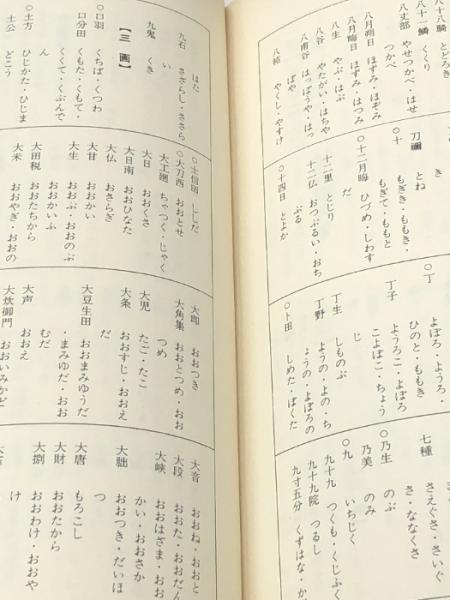 八十八騎 とどろき
八十一鱗 くくり
八丈部 やせつかべ・はせつかべ
八月朔日 ほずみ・ほぞみ
八月晦日 ほずみ・はつみ
八生 やぶ・はぶ
八谷 やたがい・はちや
八甫谷 はっぽうや・はっぽや
八柿 やくし・やすけ
き
刀禰 とね
○十 もぎき・もぎぎ・もぎて・ももと
○十二月晦 ひづめ・しわすだ
十二里 とじり
十二仏 おつぶるい・おちぶる
○十四日 とよか
○丁 よぼろ・ようろ・ひのと・ももき
丁子 ようろこ・よぼろこ・よぼこ・ちょうじ
丁生 しものぶ
丁野 ようの・よの・ちょうの・よぼろの
○卜田 しめた・ぼくた
七種 さえぐさ・さいぐさ・ななくさ
○乃生 のぶ
乃美 のみ
○九 いちじく
九十九 つくも・くじふく
九十九院 つるし
九寸五分 くずはな・か
はた
九石 さざらし・さざらい
九鬼 くき
【三 画】
○口羽 くちば・くつわ
口分田 くもた・くもて・くくて・くぶんでん
○土方 ひじかた・ひじま
土公 どこう
○士信田 ししだ
○大刀西 おおとせ
大工廻 ちゃつく・じゃく
大日 おおくさ
大日南 おおひなた
大仏 おさらぎ
大甘 おおかい
大生 おおぶ・おおのぶ
おおかいふ
大田税 おおたちから
大米 おおやぎ・おおの
大卽 おおつき
大角集 おおとつめ・おおつめ
大児 たご・たこ
大条 おおすじ・おおえだ
大豆生田 おおまみゆうだ・まみゆだ・おおむだ
大声 おおえ
大炊御門 おおいみかど
大音 おおね・おおと
大段 おおた・おおだん
大峡 おおはざま・おおかい・おおさか
大朏 おおつき・だいほつ
大唐 もろこし
大財 おおたから
大捌 おおわけ・おおやけ